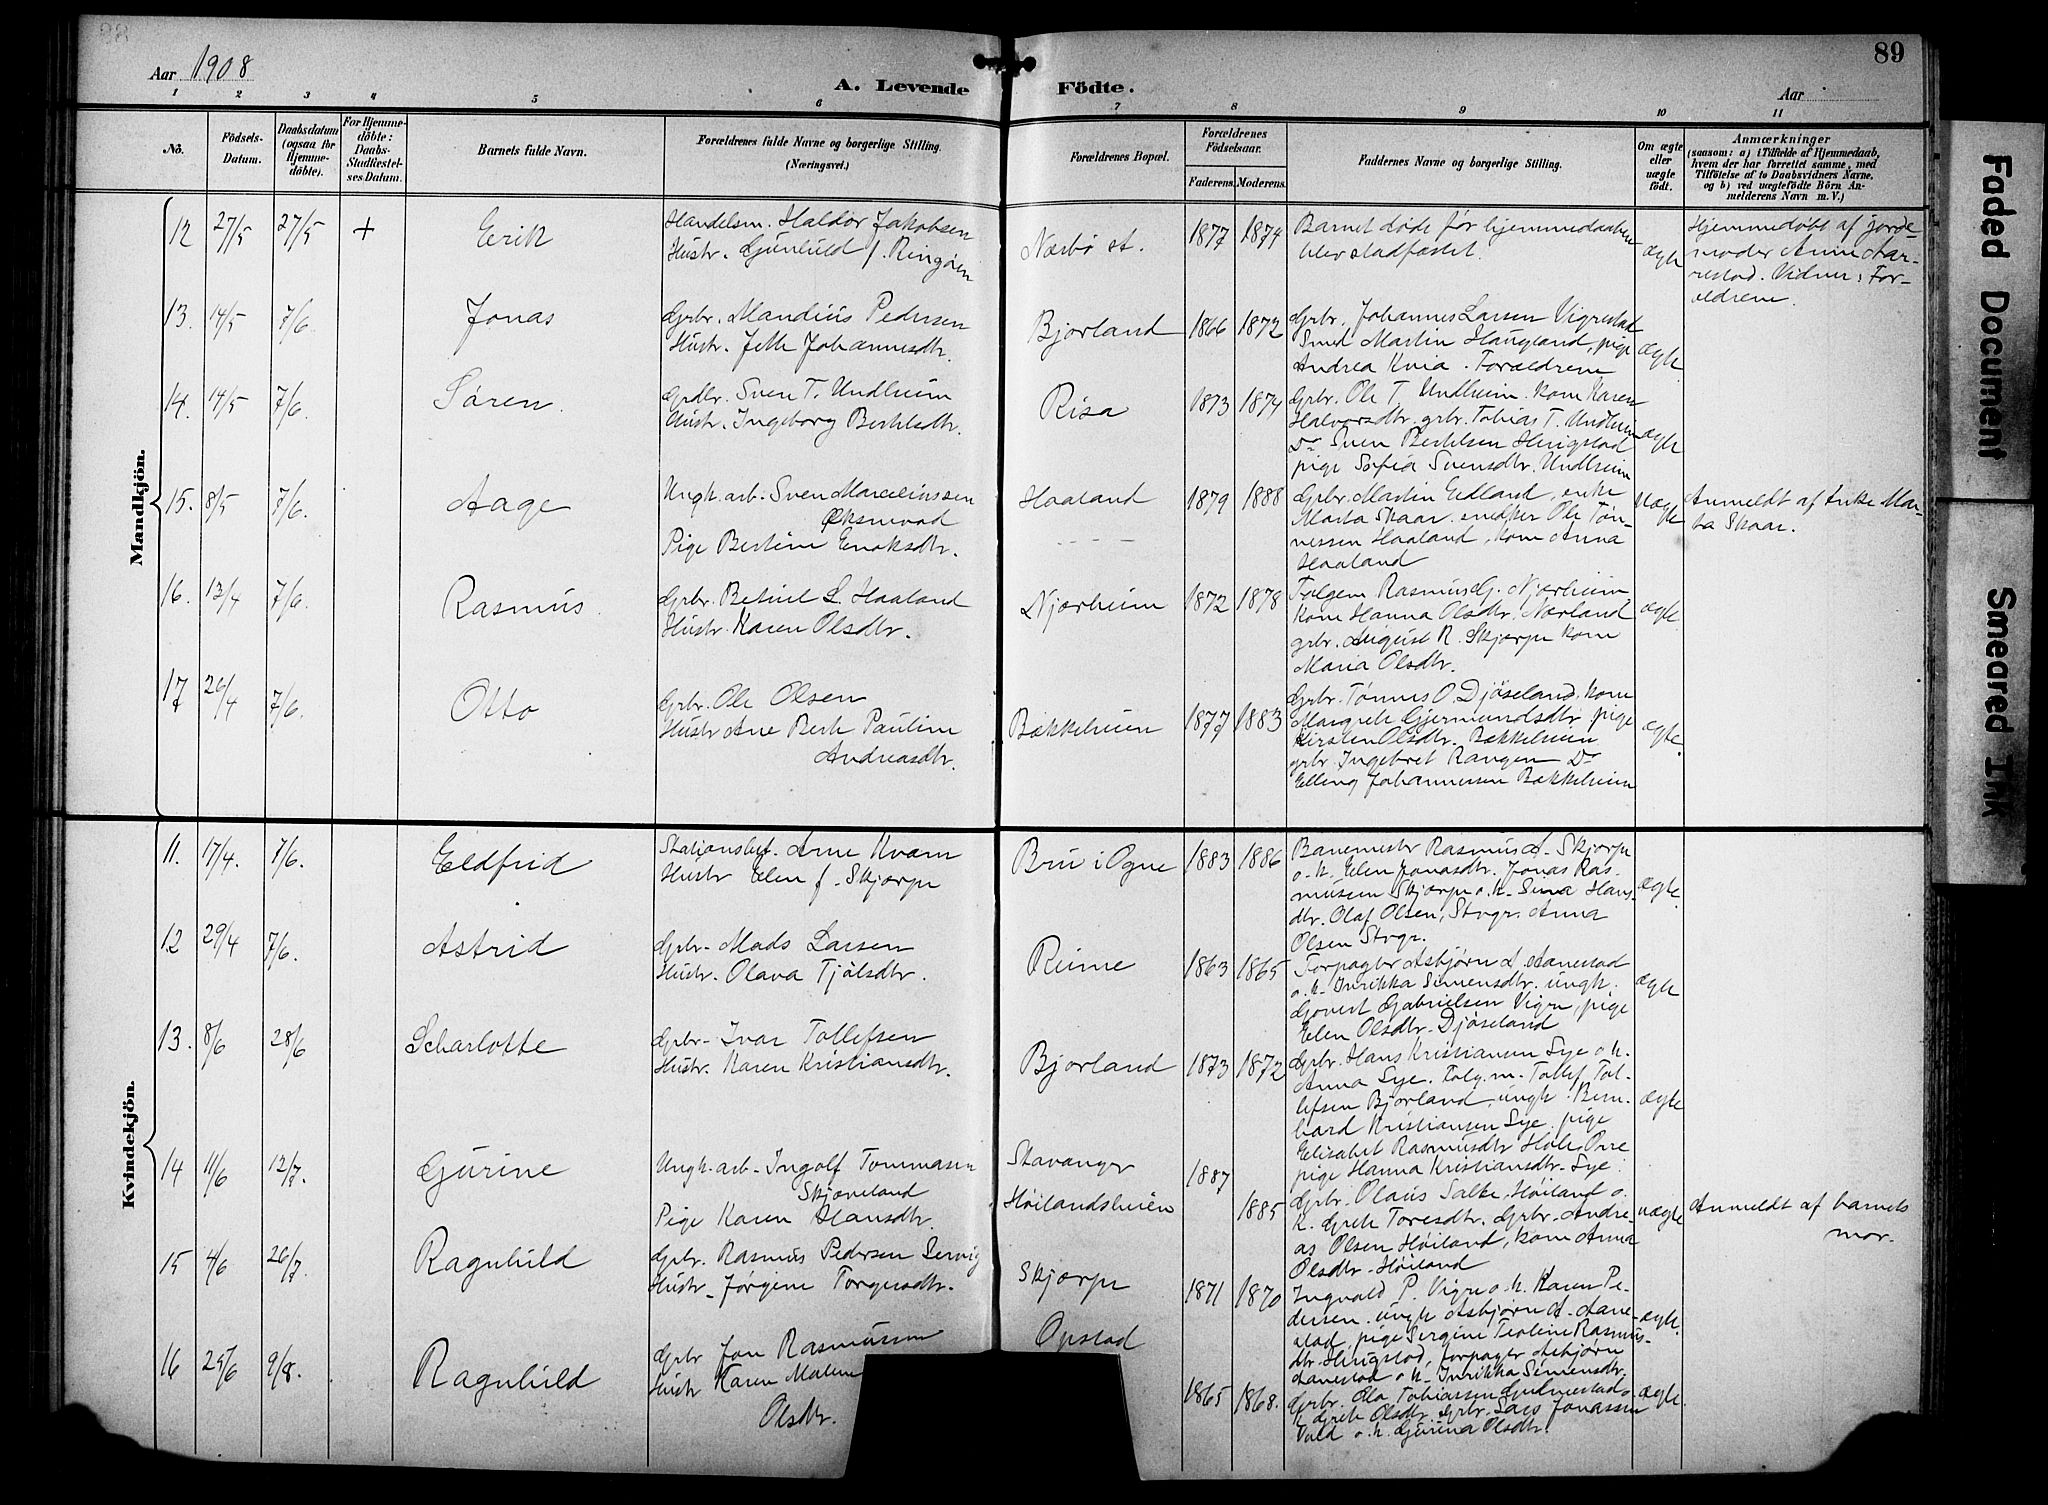 89
Aar 1908
A. Levende Födte.
Aar
1 2 3 4 5 6 7 8 9 10 11
No.
Födsels-Datum.
Daabsdatum (ogsaa for Hjemmedöbte).
For Hjemmedöbte: Daabs-Stadfæstelses Datum.
Barnets fulde Navn.
Forældrenes fulde Navne og borgerlige Stilling. (Næringsvei.)
Forældrenes Bopæl.
Forældrenes Födselsaar.
Faderens. Moderens.
Faddernes Navne og borgerlige Stilling.
Om ægte eller uægte födt.
Anmærkninger
(saasom: a) i Tilfælde af Hjemmedaab, hvem der har forrettet samme, med Tilföielse af to Daabsvidners Navne, og b) ved uægtefödte Börn Anmelderens Navn m. V.)
Mandkjön.
12 27/5 27/5 + Erik
Handelsm. Haldor Jakobsen
Hustr. Gunhild f. Ringøen
Nærbö st. 1877 1874
Barnet døde før hjemmedaaben
blev stadfæstet.
ægte
Hjemmedøbt af jorde-
moder Anne Aar-
restad. Vidner: For-
ældrene.
13. 14/5 7/6. Jonas
Grbr. Mandius Pedersen
Hustr. Jette Johannesdtr.
Bjorland 1866 1872
Grbr. Johannes Larsen Vigrestad
Smed Martin Haugland, pige
Andrea Kvia. Forældrene
ægte
14. 14/5 7/6. Søren.
Grdbr. Sven T. Undheim
Hustr. Ingeborg Berteldtr.
Risa 1873 1874
Grbr. Ole T. Undheim. kone Karen
Halvorsdtr. grbr. Tobias T. Undheim
Do Sven Bertelsen Hingstad
pige Sofia Svensdtr. Undheim
ægte
15. 8/5 7/6. Aage
Ungk. arb. Sven Marceliussen
Øksnevad
Pige Bertine Enoksdtr.
Haaland 1879 1888
Grbr. Martin Eidland, enke
Marta Skaar. endker Ole Tøn-
nessen Haaland, kone Anna
Haaland
Uægte
Anmeldt af Enke Mar-
ta Skaar.
16. 13/4 7/6. Rasmus.
Grbr. Betuel L. Haaland
Hustr. Karen Olsdtr.
Njærheim 1872 1878
Følgem Rasmus G. Njærheim
kone Hanna Olsdtr. Nærland
grbr. August R. Skjærpe kone
Maria Olsdtr.
ægte.
17 26/4 7/6. Otto
Grbr. Ole Olsen
Hustr Ane Berte Pauline
Andreasdtr.
Bækkeheien 1877 1883
Grbr. Tønnes O. Djøseland, kone
Margrete Gjermundsdtr pige
Kirsten Olsdtr. Bækkeheien
grbr. Ingebret Rangen Do
Elling Johannessen Bækkeheien
ægte.
Kvindekjön.
11. 17/4. 7/6. Eldfrid
Stationsbet. Arne Kvam
Hustr Elen f. Skjærpe
Bru i Ogne 1883 1886
Banemester Rasmus A. Skjærpe
o. h. Elen Jonasdtr. Jonas Ras-
mussen Skjærpe o. h. Sina Hans-
dtr. Olaf Olsen, Stvgr. Anna
Olsen Stvgr.
ægte.
12 29/4 7/6. Astrid
Grbr. Mads Larsen
Hustr. Olava Tjølsdtr.
Rime 1863 1865
Forpagter Asbjørn A. Aanestad
o. h. Inrikka Simensdtr. ungk.
Govert Gabrielsen Vigre, pige
Elen Olsdtr. Djøseland
ægte
13. 8/6 28/6 Scharlotte
Grbr. Ivar Tollefsen
Hustr. Karen Kristiansdtr.
Bjorland 1873 1872
Grbr. Hans Kristiansen Lye o h.
Anna Lye. Følg.m. Tollef Tol-
lefsen Bjorland, ungk. Bern-
hard Kristiansen Lye. pige
Elisabet Rasmusdtr Hole Orre
pige Hanna Kristiansdtr. Lye.
ægte
14 11/6 12/7. Gurine
Ungk. arb. Ingolf Tommasen
Skjæveland
Pige Karen Hansdtr.
Stavanger 1887
Høilandsheien 1885
Grbr. Olaus Salte, Høiland o.
k. Grete Toresdtr. Grbr. Andre-
as Olsen Høiland, kone Anna
Olsdtr. Høiland
uægte
Anmeldt af barnets
mor.
15 4/6 26/7. Ragnhild
Grbr. Rasmus Pedersen Servig
Hustr. Jørgene Torgersdtr.
Skjærpe 1871 1870
Ingvald P. Vigre o. h. Karen Pe-
dersen. ungk Asbjørn A. Aane-
stad, pige Sergine Teoline Rasmus-
dtr. Hingstad, forpagter Asbjørn
Aanestad o h. Inrikka Simensdtr.
ægte.
16 25/6 9/8. Ragnhild
Grbr Jon Rasmussen
Hustr Karen Malene
Olsdtr.
Opstad 1865 1868.
Grbr. Ola Tobiassen Gudmestad o
k Grete Olsdtr. Grbr. Lars Jonassen
Tuld o. h. Gurina Olsdtr.
ægte.
Faded Document
Smeared Ink